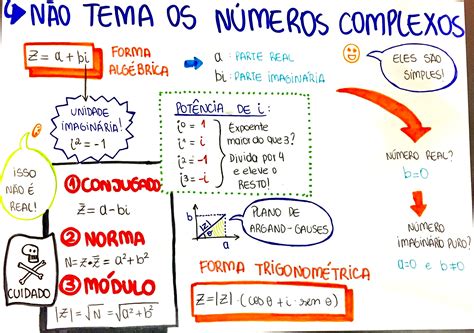 NÃO TEMA OS NÚMEROS COMPLEXOS
Z = a + bi
FORMA
ALGÉBRICA
a: PARTE REAL
bi: PARTE IMAGINÁRIA
ELES SÃO
SIMPLES!
UNIDADE
IMAGINÁRIA!
i² = -1
ISSO
NÃO É
REAL!
POTÊNCIA DE i:
i⁰ = 1
i¹ = i
i² = -1
i³ = -i
Expoente
maior do que 3?
Divida por 4
e eleve o
RESTO!
NÚMERO REAL?
b=0
NÚMERO
IMAGINÁRIO PURO?
a=0 e b≠0
① CONJUGADO
z̄ = a - bi
② NORMA
N = z • z̄ = a² + b²
③ MÓDULO
|z| = √N = √a² + b²
CUIDADO
b
|z|
θ
a
PLANO DE
ARGAND-GAUSSES
FORMA TRIGONOMÉTRICA
Z = |Z| · (cos θ + i · sen θ)